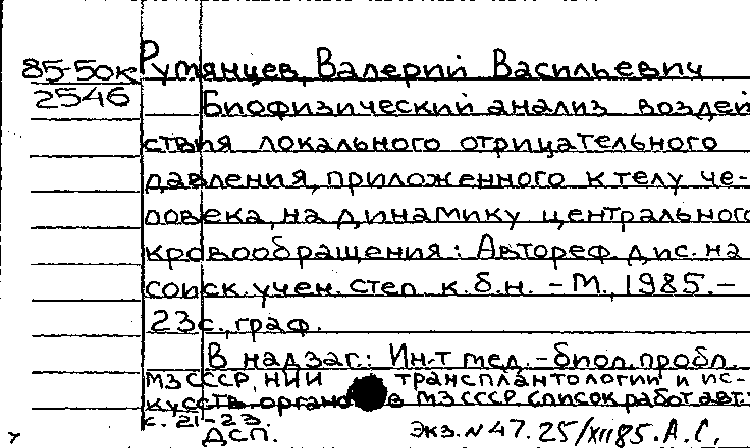 85-50к Румянцев, Валерий Васильевич
2546 Биофизический анализ воздей
ствия локального отрицательного
давления, приложенного к телу че-
ловека, на динамику центрального
кровообращения: Автореф. дис. на
соиск. учен. степ. к.б.н. - М., 1985. -
23с., граф.
В надзаг.: Ин-т мед.-биол. пробл.
МЗ СССР, НИИ трансплантологии и ис-
кусств. органов МЗ СССР. Список работ авт.:
с. 21-23.
ДСП. Экз. N 47. 25/XII85. А.С.